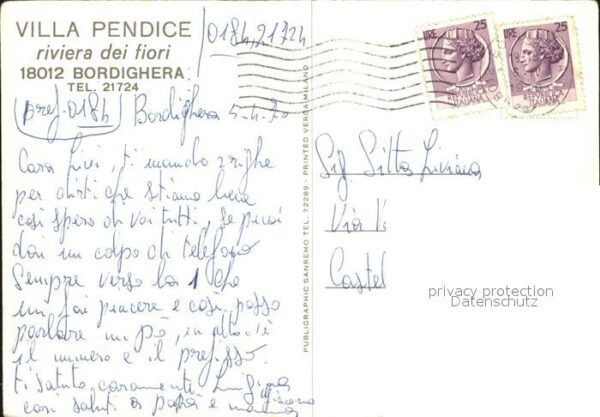 VILLA PENDICE
riviera dei fiori
18012 BORDIGHERA
TEL. 21724
0184/21724
(Pref. 0184) Bordighera 5-4-70
Cara Livi, ti mando 2 righe
per dirti che stiamo bene
così spero di voi tutti, se puoi
dai un colpo di telefono
Sempre verso la 1 che
mi fai piacere e così posso
parlare un pò, in alto c'è
il numero e il prefisso.
ti saluto caramente Luigina
cari saluti a papà e mamma
PUBLIGRAPHIC SANREMO TEL. 72289 - PRINTED VERGA/MILANO
LIRE 25
ITALIANA
LIRE 25
ITALIANA
Sig. Sitta Liviana
Via
Castel
privacy protection
Datenschutz